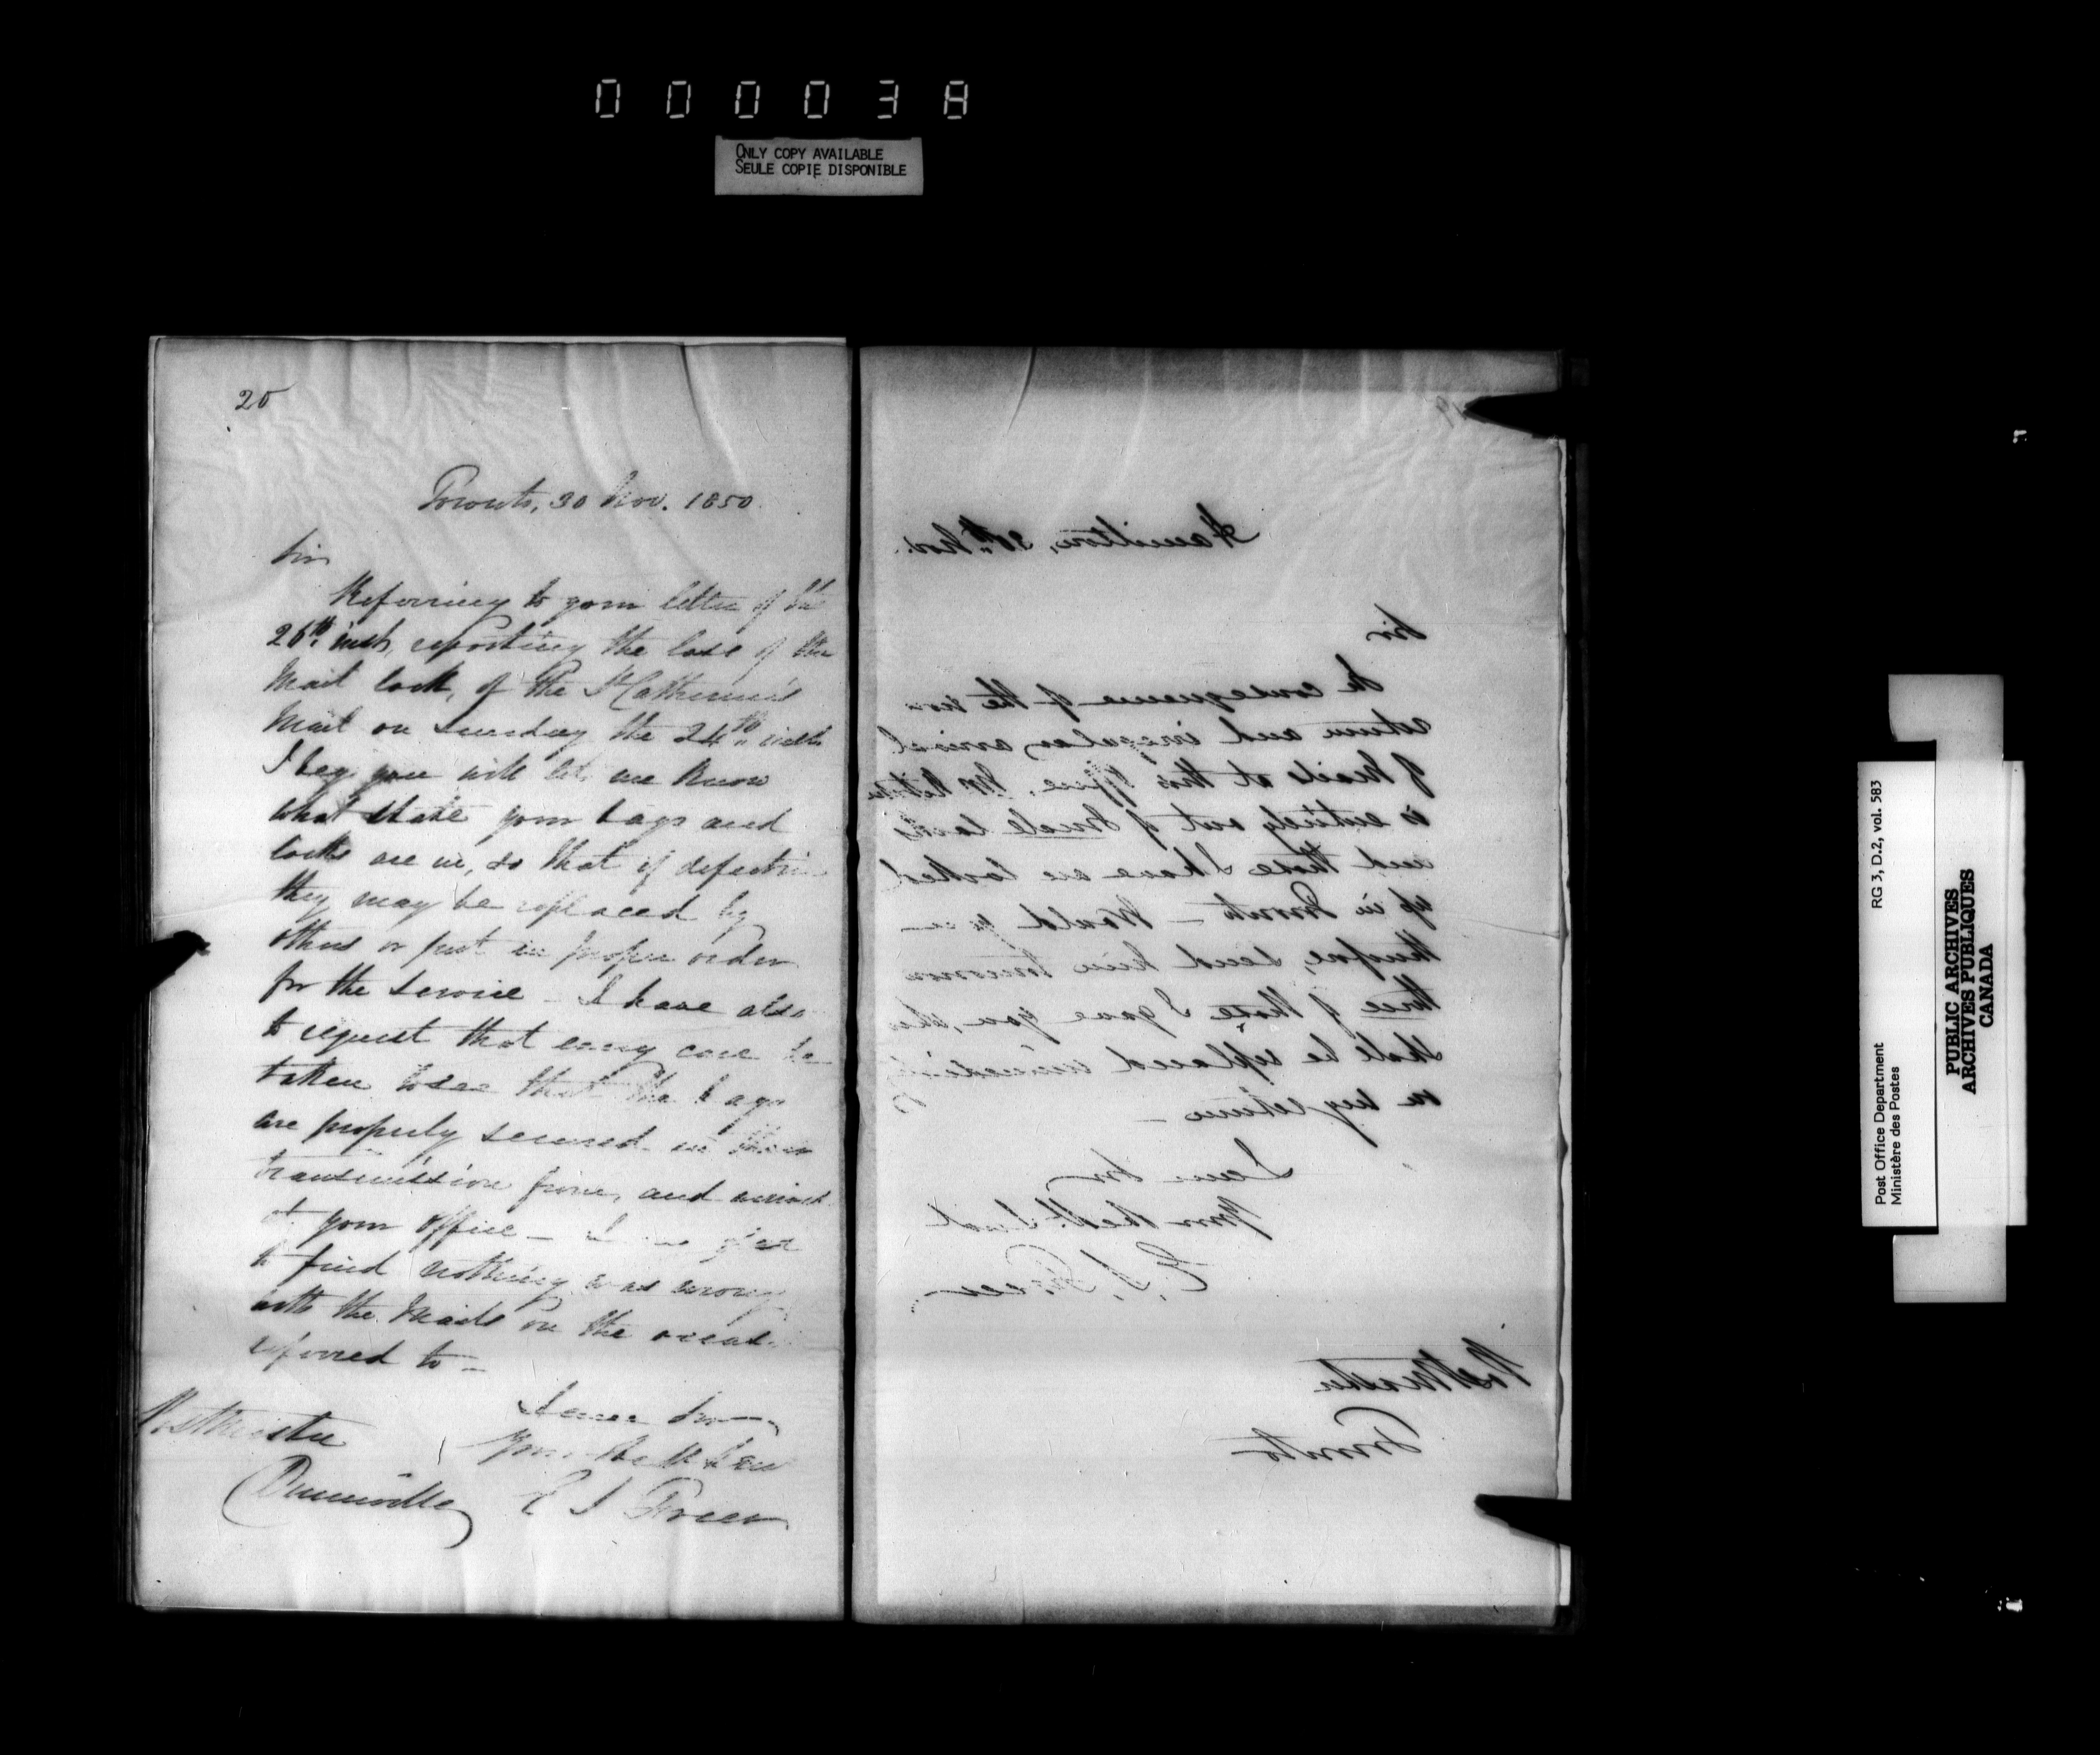 00003A
ONLY COPY AVAILABLE
SEULE COPIE DISPONIBLE
20
Toronto, 30 Nov. 1850.
Sir
Referring to your letter of the
26th inst, reporting the loss of the
Mail lock, of the St Catherines
Mail on Sunday the 24th inst
I beg you will let me know
what state your bags and
locks are in, so that if defective
they may be replaced by
others or put in proper order
for the service - I have also
to request that every care be
taken to see that the bags
are properly secured in their
transmission from, and arrival
at your office - I am glad
to find nothing was wrong
with the Mails on the occas.
referred to -
I am Sir
Your Obedt Serv
E S Freer
Postmaster
Dunnville
19
Hamilton, 30th Nov.
Sir
In consequence of the non
return and irregular arrival
of Mails at this Office, Mr Ritchie
is entirely out of Mail locks
and those I have are locked
up in Toronto - Would you
therefore, send him tomorrow
three of those I gave you, they
shall be replaced immediately
on my return -
I am Sir
Your Obedt Servt
E. S. Freer
Postmaster
Toronto
Post Office Department
Ministère des Postes
RG 3, D.2, vol. 583
PUBLIC ARCHIVES
ARCHIVES PUBLIQUES
CANADA